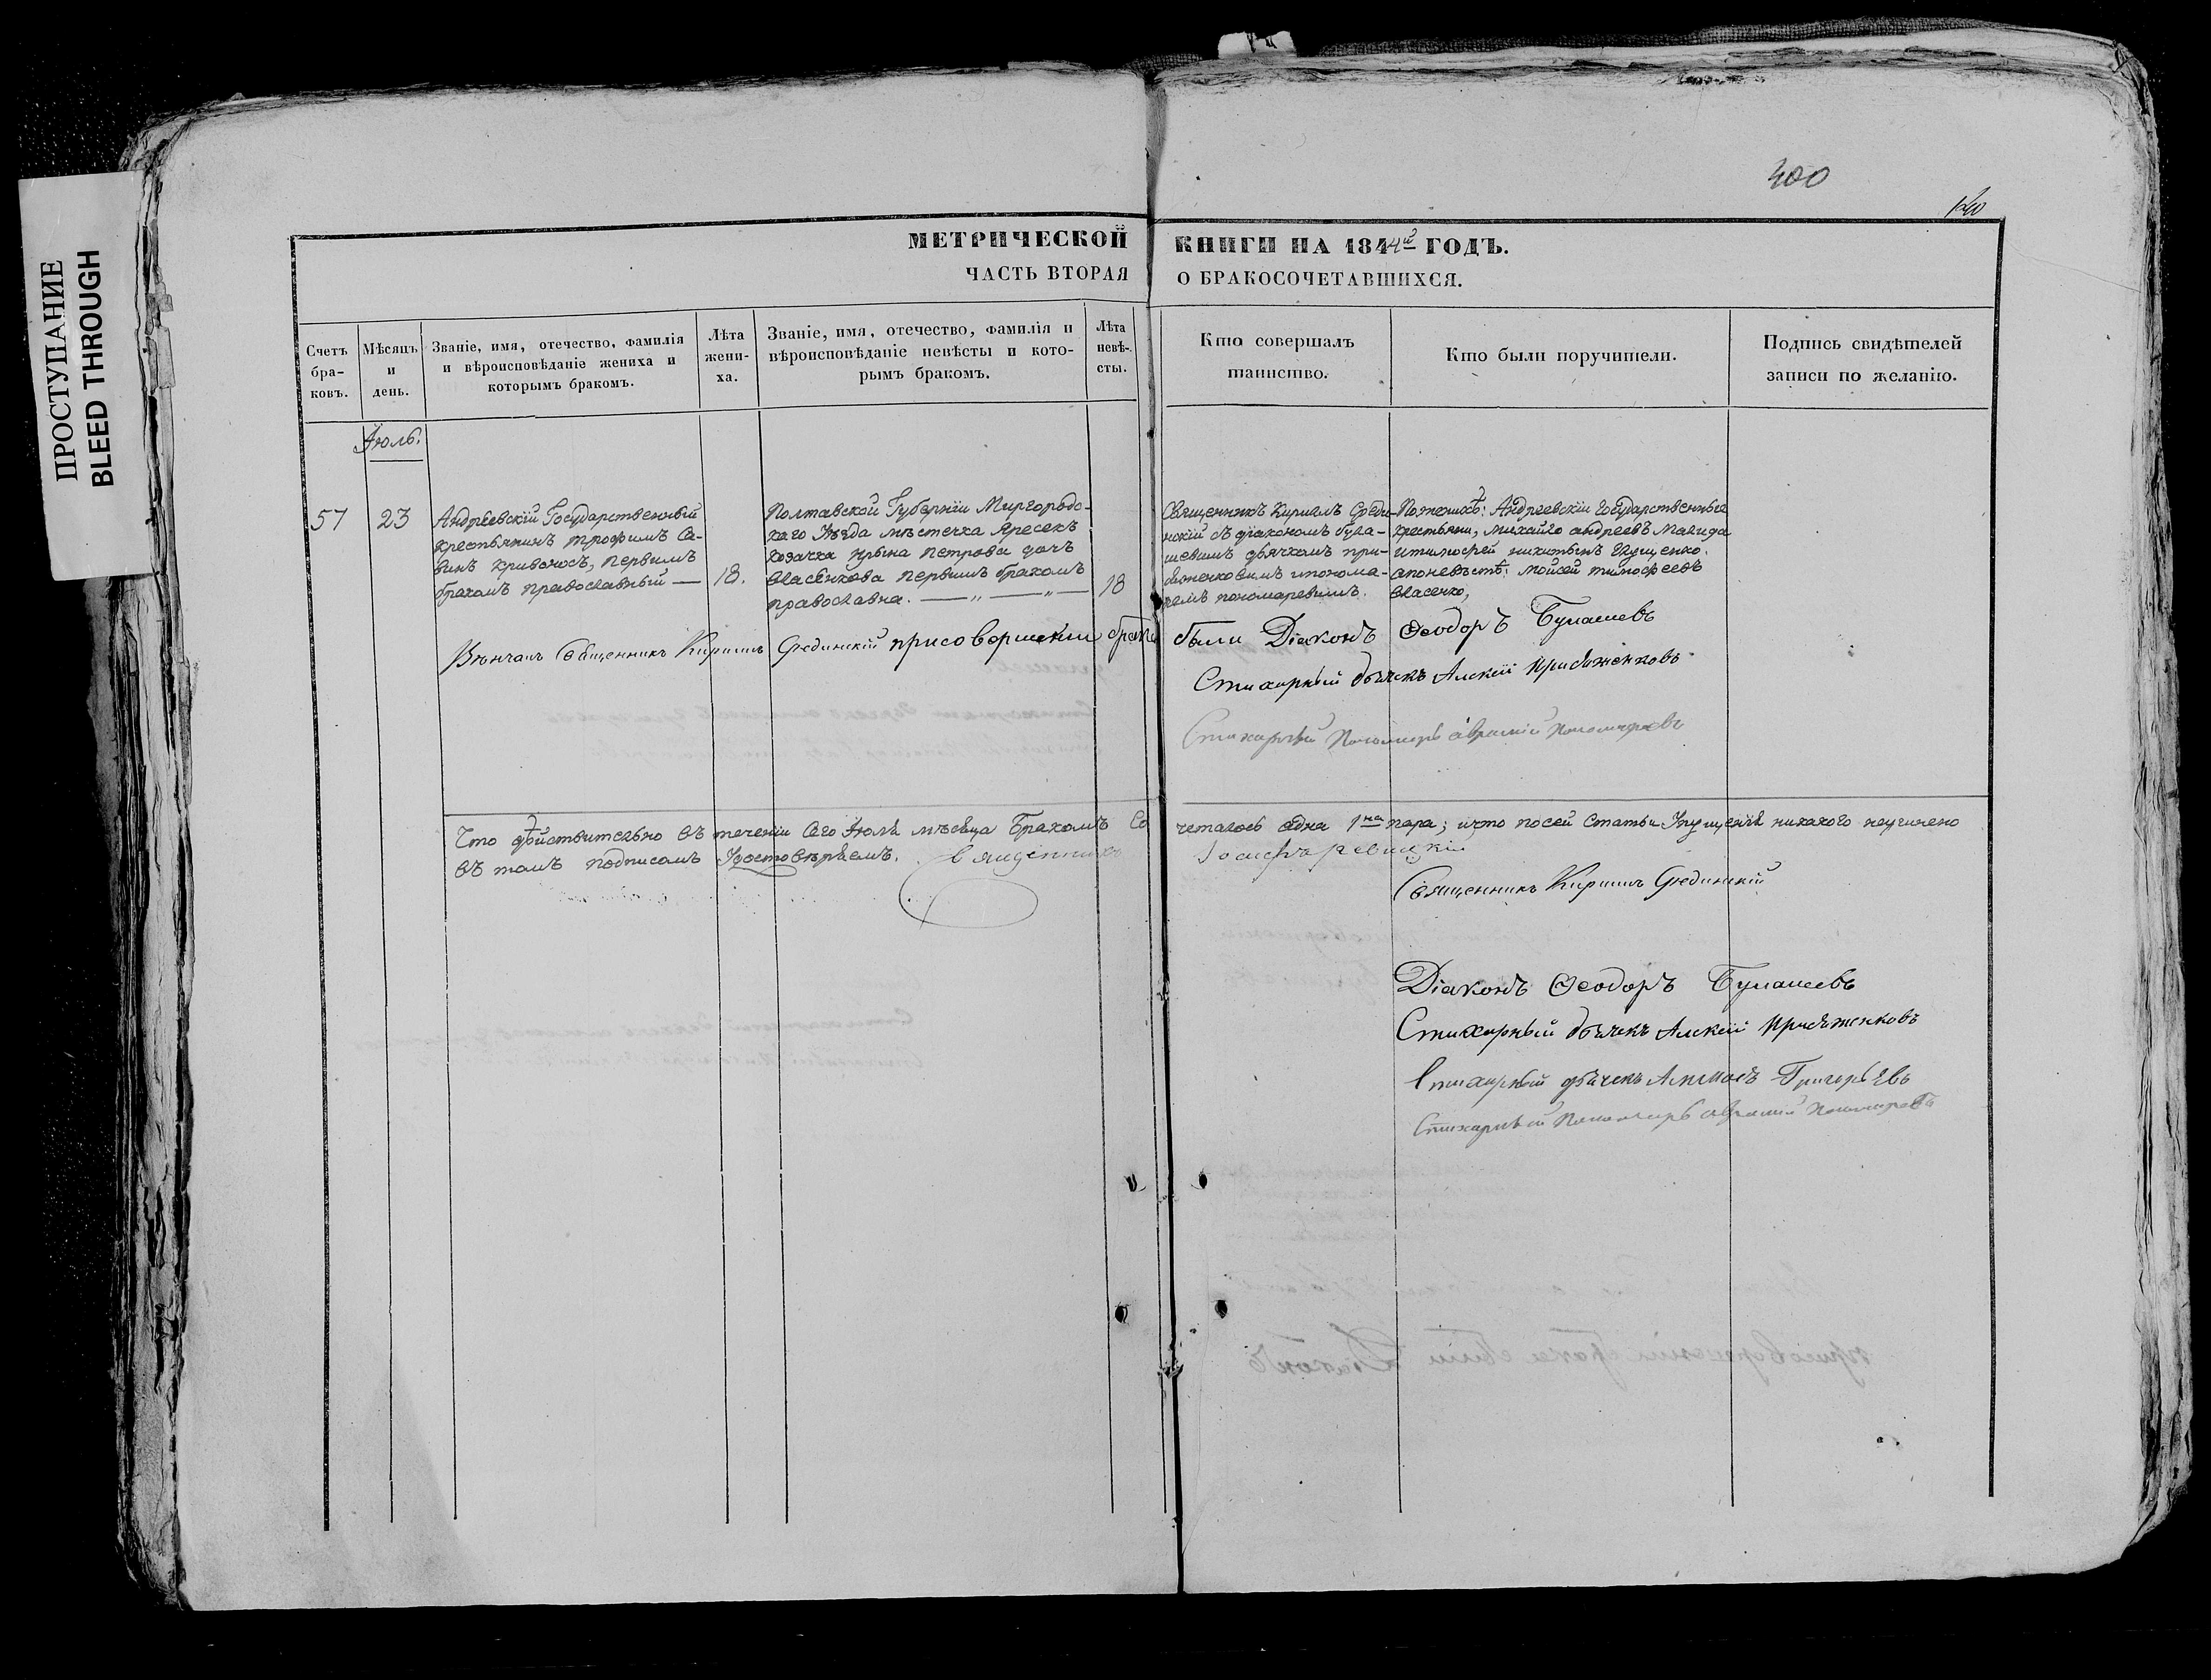 ПРОСТУПАНИЕ
BLEED THROUGH
400
МЕТРИЧЕСКОЙ КНИГИ НА 1844й ГОДЪ.
ЧАСТЬ ВТОРАЯ О БРАКОСОЧЕТАВШИХСЯ.
Счетъ бра-
ковъ.
Мѣсяцъ
и
день.
Званіе, имя, отечество, фамилія
и вѣроисповѣданіе жениха и
которымъ бракомъ.
Лѣта
жени-
ха.
Званіе, имя, отечество, фамилія и
вѣроисповѣданіе невѣсты и кото-
рымъ бракомъ.
Лѣта
невѣ-
сты.
Кто совершалъ
таинство.
Кто были поручители.
Подпись свидѣтелей
записи по желанію.
Іюль.
57
23
Андреевскій Государственный
крестьянинъ трофимъ Са-
винъ кривоносъ, первымъ
бракомъ православный —
18.
Полтавской Губерніи Миргородс-
каго Уѣзда мѣстечка Яресекъ
козачка ирына петрова дочь
Власенкова первымъ бракомъ
православна. — „ — „ —
18
Священникъ Кирилъ Среди-
нскій съ діакономъ була-
шевимъ дьячкомъ при-
ипонома-
ремъ пономаревимъ.
Поженихѣ: Андреевскіи государственные
крестьяни, михайло андреевъ
итимофей никитынъ
апоневѣстѣ: мойсей тимофеевъ
Власенко,
Вѣнчалъ Священникъ Кирилъ Срединскій присовершеніи брака были Діаконъ Ѳеодоръ Булашевъ
Стихарный дьячекъ Алексій
Стихарный Пономарь Пономаревъ
Что дѣйствительно въ теченіи сего Іюля мѣсяца бракомъ сочеталось одна 1на пара; ичто посей статьи упущенія никакого неучинено
въ томъ подписомъ Удостовѣряемъ. Священникъ
Священникъ Кирилъ Срединскій
Діаконъ Ѳеодоръ Булашевъ
Стихарный дьячекъ Алексій
Стихарный дьячекъ Григорьевъ
Стихарный Пономарь Пономаревъ